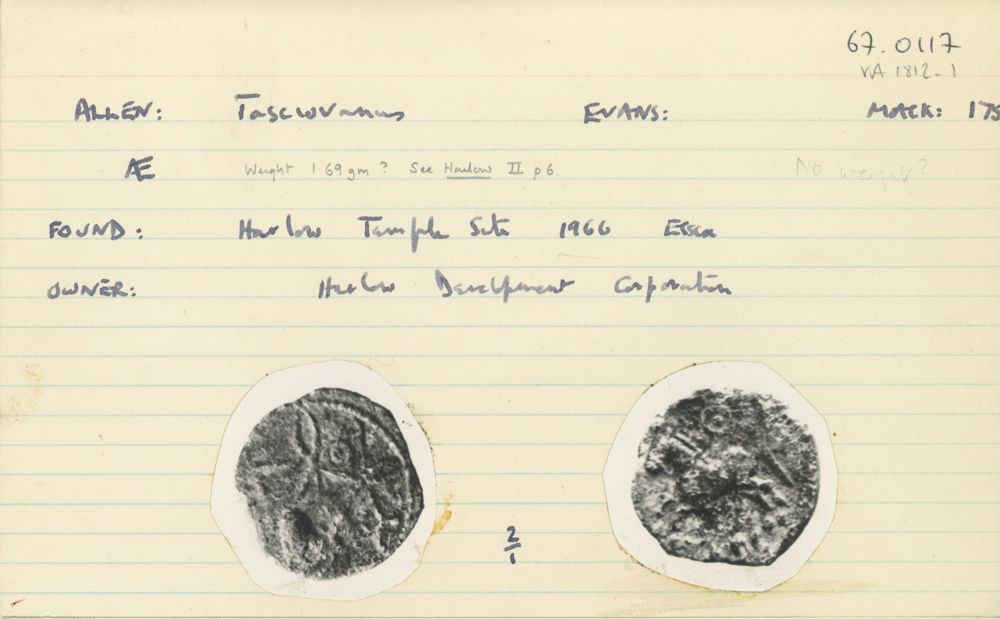 67.0117
VA 1812-1
ALLEN: Tasciovanus EVANS: MACK: 175
Æ Weight 1.69 gm ? See Harlow II p 6. No weight?
FOUND: Harlow Temple Site 1966 Essex
OWNER: Harlow Development Corporation
2
1